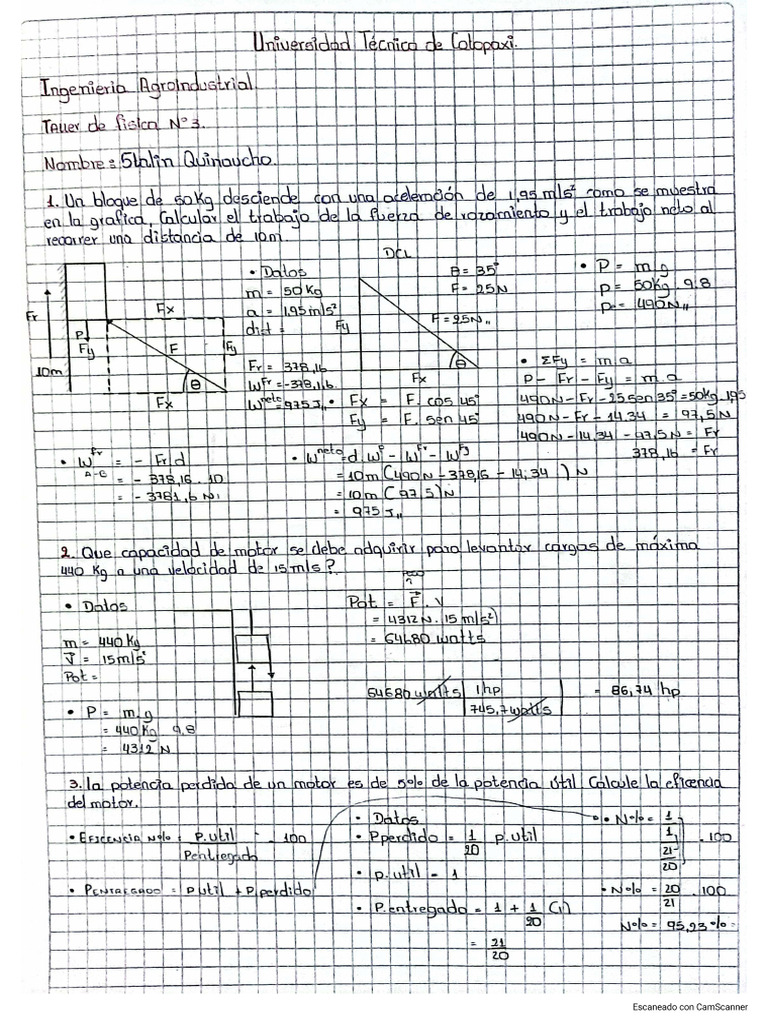 Universidad Técnica de Cotopaxi.
Ingenieria AgroIndustrial.
Taller de fisica N°3.
Nombre: Stalin Quinaucho.
1. Un bloque de 50Kg desciende con una aceleración de 1,95 m/s² como se muestra
en la grafica, Calcular el trabajo de la fuerza de rozamiento y el trabajo neto al
recorrer una distancia de 10m.
Fr
P
Fy
10m
Fx
F
Fy
θ
Fx
• Datos
m = 50Kg
a = 1,95 m/s²
dist =
Fr = 378,16
W Fr = -378,1,6
W neto = 975 J,,
DCL
θ = 35°
F = 25N
Fy
F = 25N,,
θ
Fx
• Fx = F. cos 45°
Fy = F. sen 45°
• P = m.g
P = 50Kg. 9.8
P = 490N,,
• ΣFy = m.a
P - Fr - Fy = m.a
490N - Fr - 25 sen 35° = 50Kg . 1.95
490N - Fr - 14,34 = 97,5N
490N - 14,34 - 97,5N = Fr
378,16 = Fr
• W fr A-B = - Fr.d
= - 378,16 . 10
= - 3781,6 N.
• W neto = d. W P - W Fr - W Fy
= 10m (490N - 378,16 - 14,34 ) N
= 10m (97,5) N
= 975 J,,
2. Que capacidad de motor se debe adquirir para levantar cargas de máxima
440 Kg a una velocidad de 15 m/s?
• Datos
m = 440 Kg
V = 15 m/s²
Pot =
• P = m.g
= 440 Kg 9.8
= 4312 N
Peso
Pot = F . V
= 4312 N. 15 m/s²)
= 64680 watts
64680 watts | 1hp = 86,74 hp
745,7 watts
3. la potencia perdida de un motor es de 5% de la potencia útil Calcule la eficencia
del motor.
• Eficencia N% = P.util . 100
Pentregado
• Pentregado = P util + P perdido
• Datos
• P perdido = 1/20 p.util
• p.util = 1
• P.entregado = 1 + 1/20 (1)
= 21/20
• N% = 1/1 . 100
21/20
• N% = 20/21 . 100
N% = 95,23 %
Escaneado con CamScanner